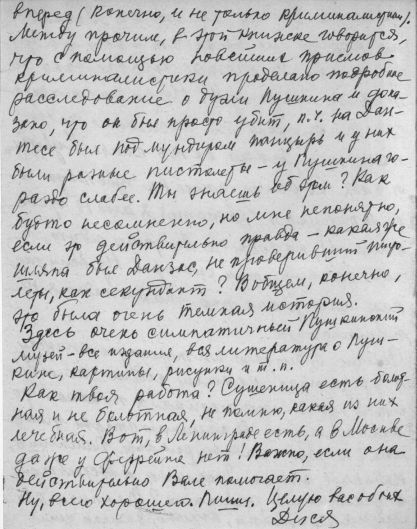 вперед (конечно, и не только криминалистика).
Между прочим, в этой книжке говорится,
что с помощью новейших приемов
криминалистики проделано подробное
расследование о дуэли Пушкина и дока-
зано, что он был просто убит, п.ч. на Дан-
тесе был под мундиром панцырь и у них
были разные пистолеты – у Пушкина го-
раздо слабее. Ты знаешь об этом? Как
будто несомненно, но мне непонятно,
если это действительно правда – какая же
шляпа был Данзас, не проверивший писто-
леты, как секундант? Вобщем, конечно,
это была очень темная история.
Здесь очень симпатичный Пушкинский
музей – все издания, вся литература о Пуш-
кине, картины, рисунки и т.п.
Как твоя работа? Сушеница есть болот-
ная и не болотная, не помню, какая из них
лечебная. Вот, в Ленинграде есть, а в Москве
даже у Феррейна нет! Важно, если она
действительно Вале помогает.
Ну, всего хорошего. Пиши. Целую вас обоих
Дуся